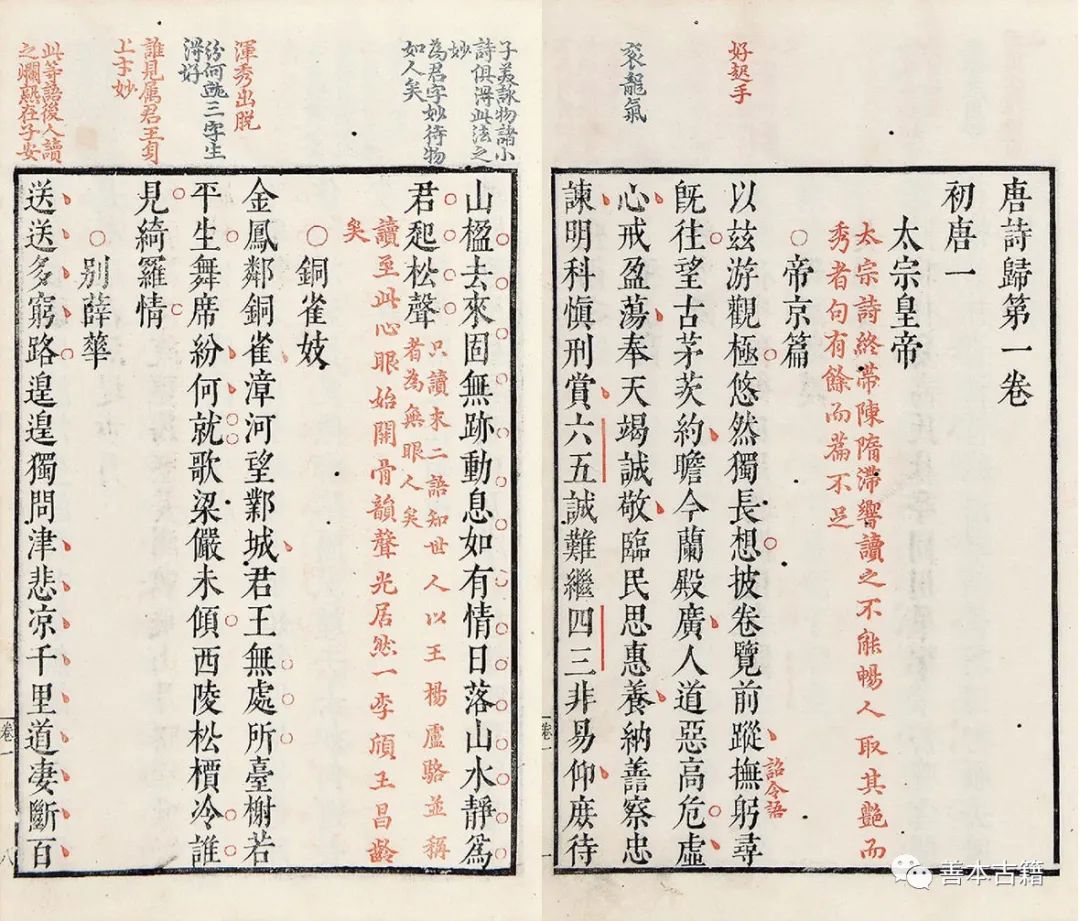 好起手
袞龍氣
唐詩歸第一卷
初唐一
太宗皇帝
太宗詩終帶陳隋滯響讀之不能暢人取其艷而
秀者句有餘而篇不足
○帝京篇
以茲游觀極悠然獨長想披卷覽前蹤撫躬尋
詔令語
旣往望古茅茨約瞻今蘭殿廣人道惡高危虛
心戒盈蕩奉天竭誠敬臨民思惠養納善察忠
諫明科愼刑賞六五誠難繼四三非易仰庻待
卷一
一
善本古籍
子美詠物諸小
詩俱得此法之
妙
為君字妙待物
如人矣
渾秀出脫
紛何就三字生
得好
誰見属君王身
上才妙
此等語後人讀
之爛熟在子安
山楹去來固無跡動息如有情日落山水靜爲
君起松聲
只讀末二語知世人以王楊盧駱並稱
者為無眼人矣
讀至此心眼始開骨韻聲光居然一李頎王昌齡
矣
○銅雀妓
金鳳鄰銅雀漳河望鄴城君王無處所臺榭若
平生舞席紛何就歌梁儼未傾西陵松檟冷誰
見綺羅情
○別薛華
送送多窮路遑遑獨問津悲凉千里道凄斷百
卷一
八